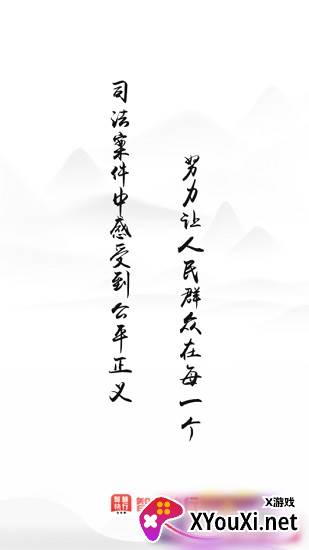 努力让人民群众在每一个
司法案件中感受到公平正义
X游戏
XYouXi.net